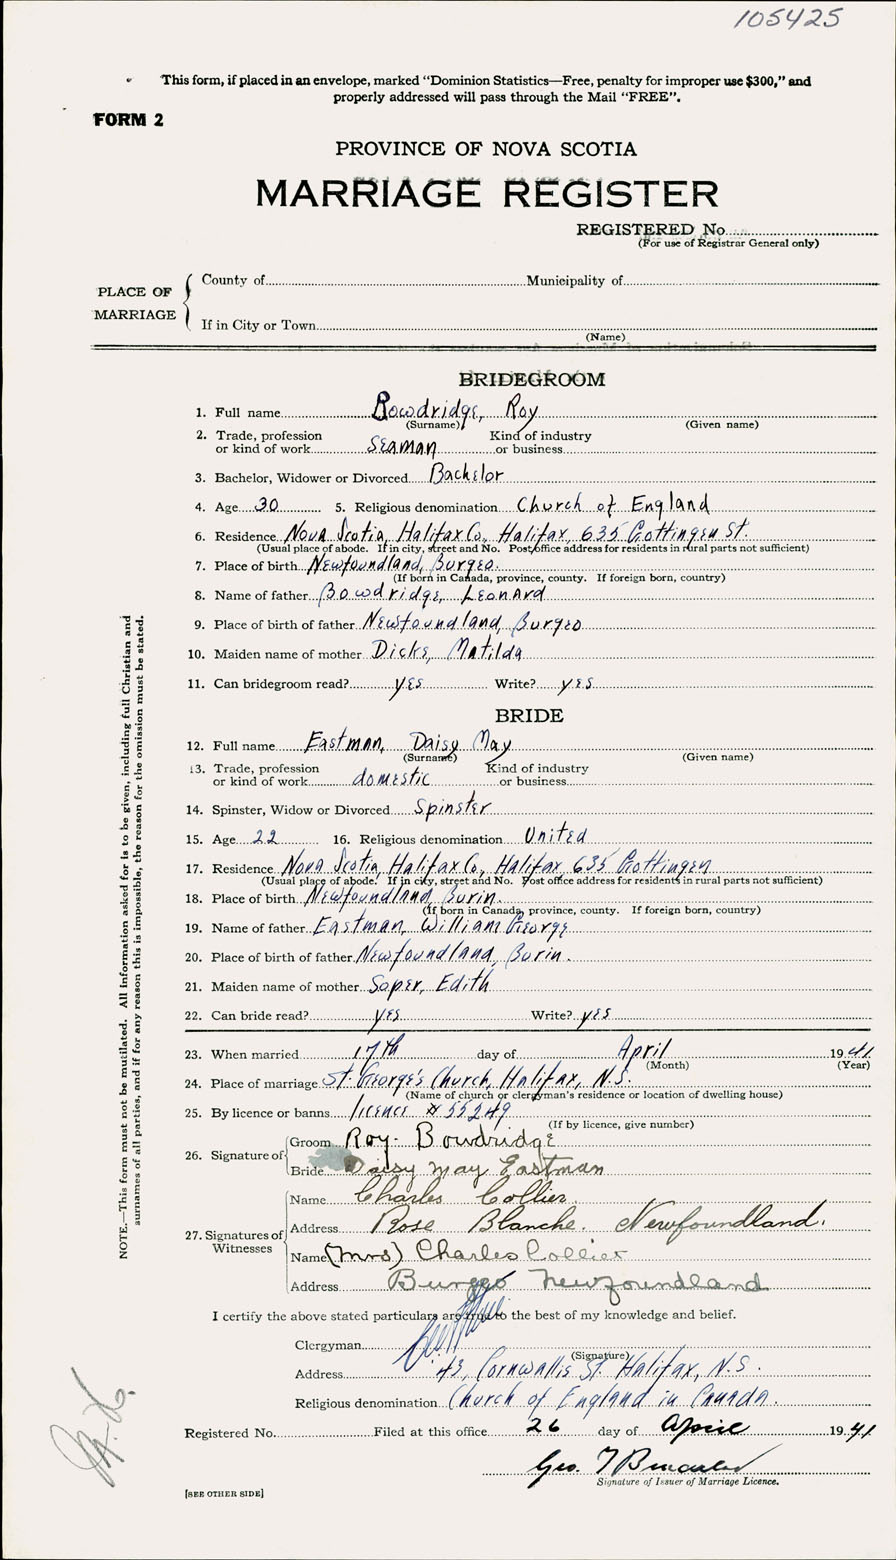 105425
This form, if placed in an envelope, marked "Dominion Statistics—Free, penalty for improper use $300," and
properly addressed will pass through the Mail "FREE".
FORM 2
PROVINCE OF NOVA SCOTIA
MARRIAGE REGISTER
REGISTERED No
(For use of Registrar General only)
PLACE OF MARRIAGE
County of Municipality of
If in City or Town
(Name)
BRIDEGROOM
1. Full name Bowdridge, Roy
(Surname) (Given name)
2. Trade, profession or kind of work Seaman Kind of industry or business
3. Bachelor, Widower or Divorced Bachelor
4. Age 30 5. Religious denomination Church of England
6. Residence Nova Scotia, Halifax Co, Halifax, 635 Gottingen St.
(Usual place of abode. If in city, street and No. Post office address for residents in rural parts not sufficient)
7. Place of birth Newfoundland, Burgeo.
(If born in Canada, province, county. If foreign born, country)
8. Name of father Bowdridge, Leonard
9. Place of birth of father Newfoundland, Burgeo
10. Maiden name of mother Dicks, Matilda
11. Can bridegroom read? yes Write? yes
BRIDE
12. Full name Eastman, Daisy May
(Surname) (Given name)
13. Trade, profession or kind of work domestic Kind of industry or business
14. Spinster, Widow or Divorced Spinster
15. Age 22 16. Religious denomination United
17. Residence Nova Scotia, Halifax Co, Halifax 635 Gottingen
(Usual place of abode. If in city, street and No. Post office address for residents in rural parts not sufficient)
18. Place of birth Newfoundland, Burin.
(If born in Canada, province, county. If foreign born, country)
19. Name of father Eastman, William George
20. Place of birth of father Newfoundland, Burin.
21. Maiden name of mother Soper, Edith
22. Can bride read? yes Write? yes
23. When married 17th day of April 1941
(Month) (Year)
24. Place of marriage St. George's Church, Halifax, N.S.
(Name of church or clergyman's residence or location of dwelling house)
25. By licence or banns licence # 55249
(If by licence, give number)
26. Signature of
Groom Roy Bowdridge
Bride Daisy May Eastman
27. Signatures of Witnesses
Name Charles Collier
Address Rose Blanche. Newfoundland.
Name (Mrs) Charles Collier
Address Burgeo Newfoundland
I certify the above stated particulars are true to the best of my knowledge and belief.
Clergyman
(Signature)
Address 43, Cornwallis St. Halifax, N.S.
Religious denomination Church of England in Canada.
Registered No. Filed at this office 26 day of April 1941
Geo. T
Signature of Issuer of Marriage Licence.
[SEE OTHER SIDE]
NOTE.—This form must not be mutilated. All information asked for is to be given, including full Christian and
surnames of all parties, and if for any reason this is impossible, the reason for the omission must be stated.